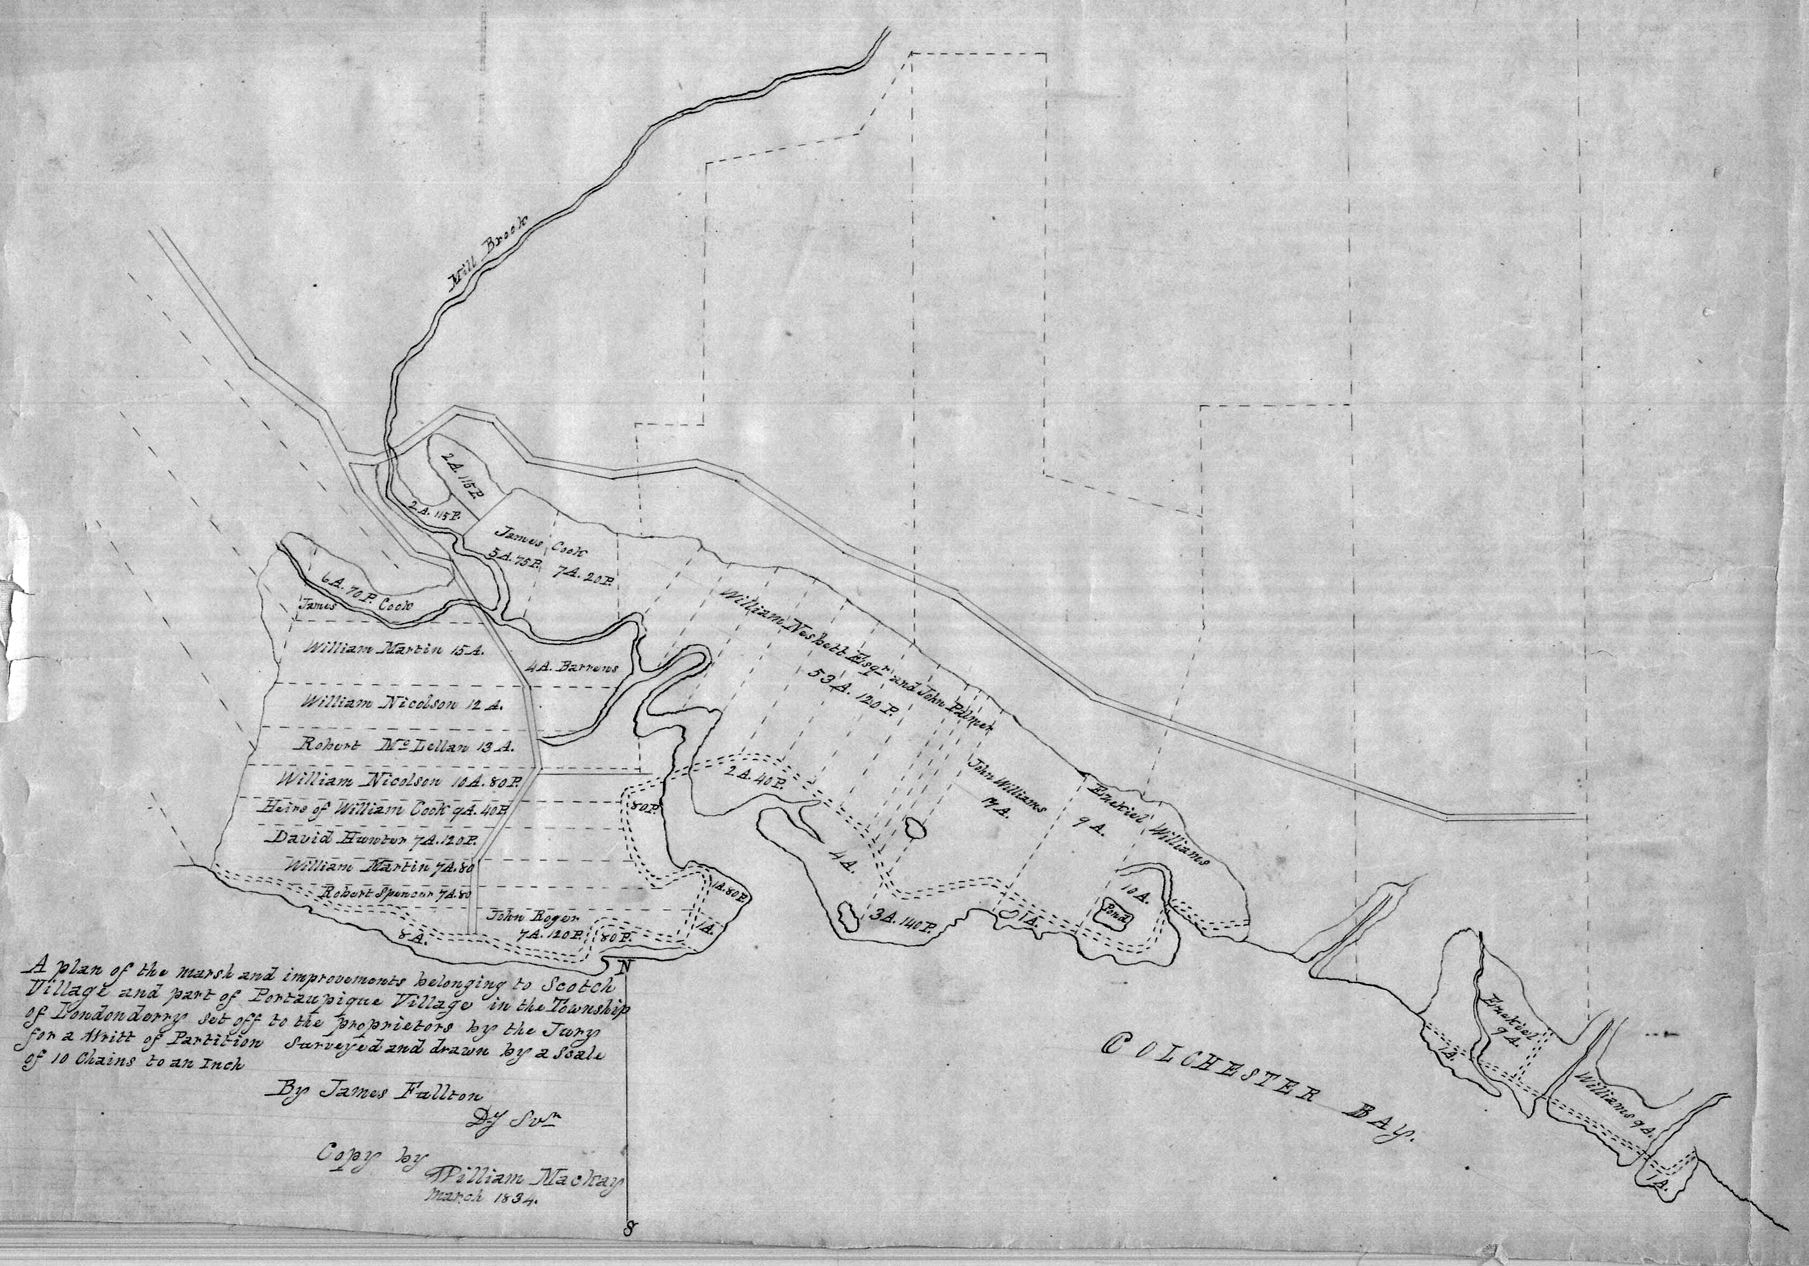 Mill Brook
2A. 115P.
2A. 115P.
James Cook
5A. 75P. 7A. 20P.
6A. 70P. Cook
James
William Martin 15A.
4A. Barrens
William Nicolson 12A.
Robert Mc Lellan 13A.
William Nicolson 10A. 80P.
Heirs of William Cook 9A. 40P.
David Hunter 7A. 120P.
William Martin 7A. 80
Robert Spencer 7A. 80
John Roger
7A. 120P.
80P.
8A.
80P.
1A. 80P.
1A.
William Nesbett Esqr. and John Palmer
53A. 120P.
2A. 40P.
4A.
3A. 140P.
John Williams
17A.
1A.
Ezekiel Williams
9A.
10A.
Pond
Ezekiel
9A.
1A.
Williams 9A.
1A.
COLCHESTER BAY.
N
S
A plan of the marsh and improvements belonging to Scotch
Village and part of Portaupique Village in the Township
of Londonderry set off to the proprietors by the Jury
for a Writt of Partition Surveyed and drawn by a Scale
of 10 Chains to an Inch
By James Fullton
Dy Svr
Copy by
William Mackay
March 1834.